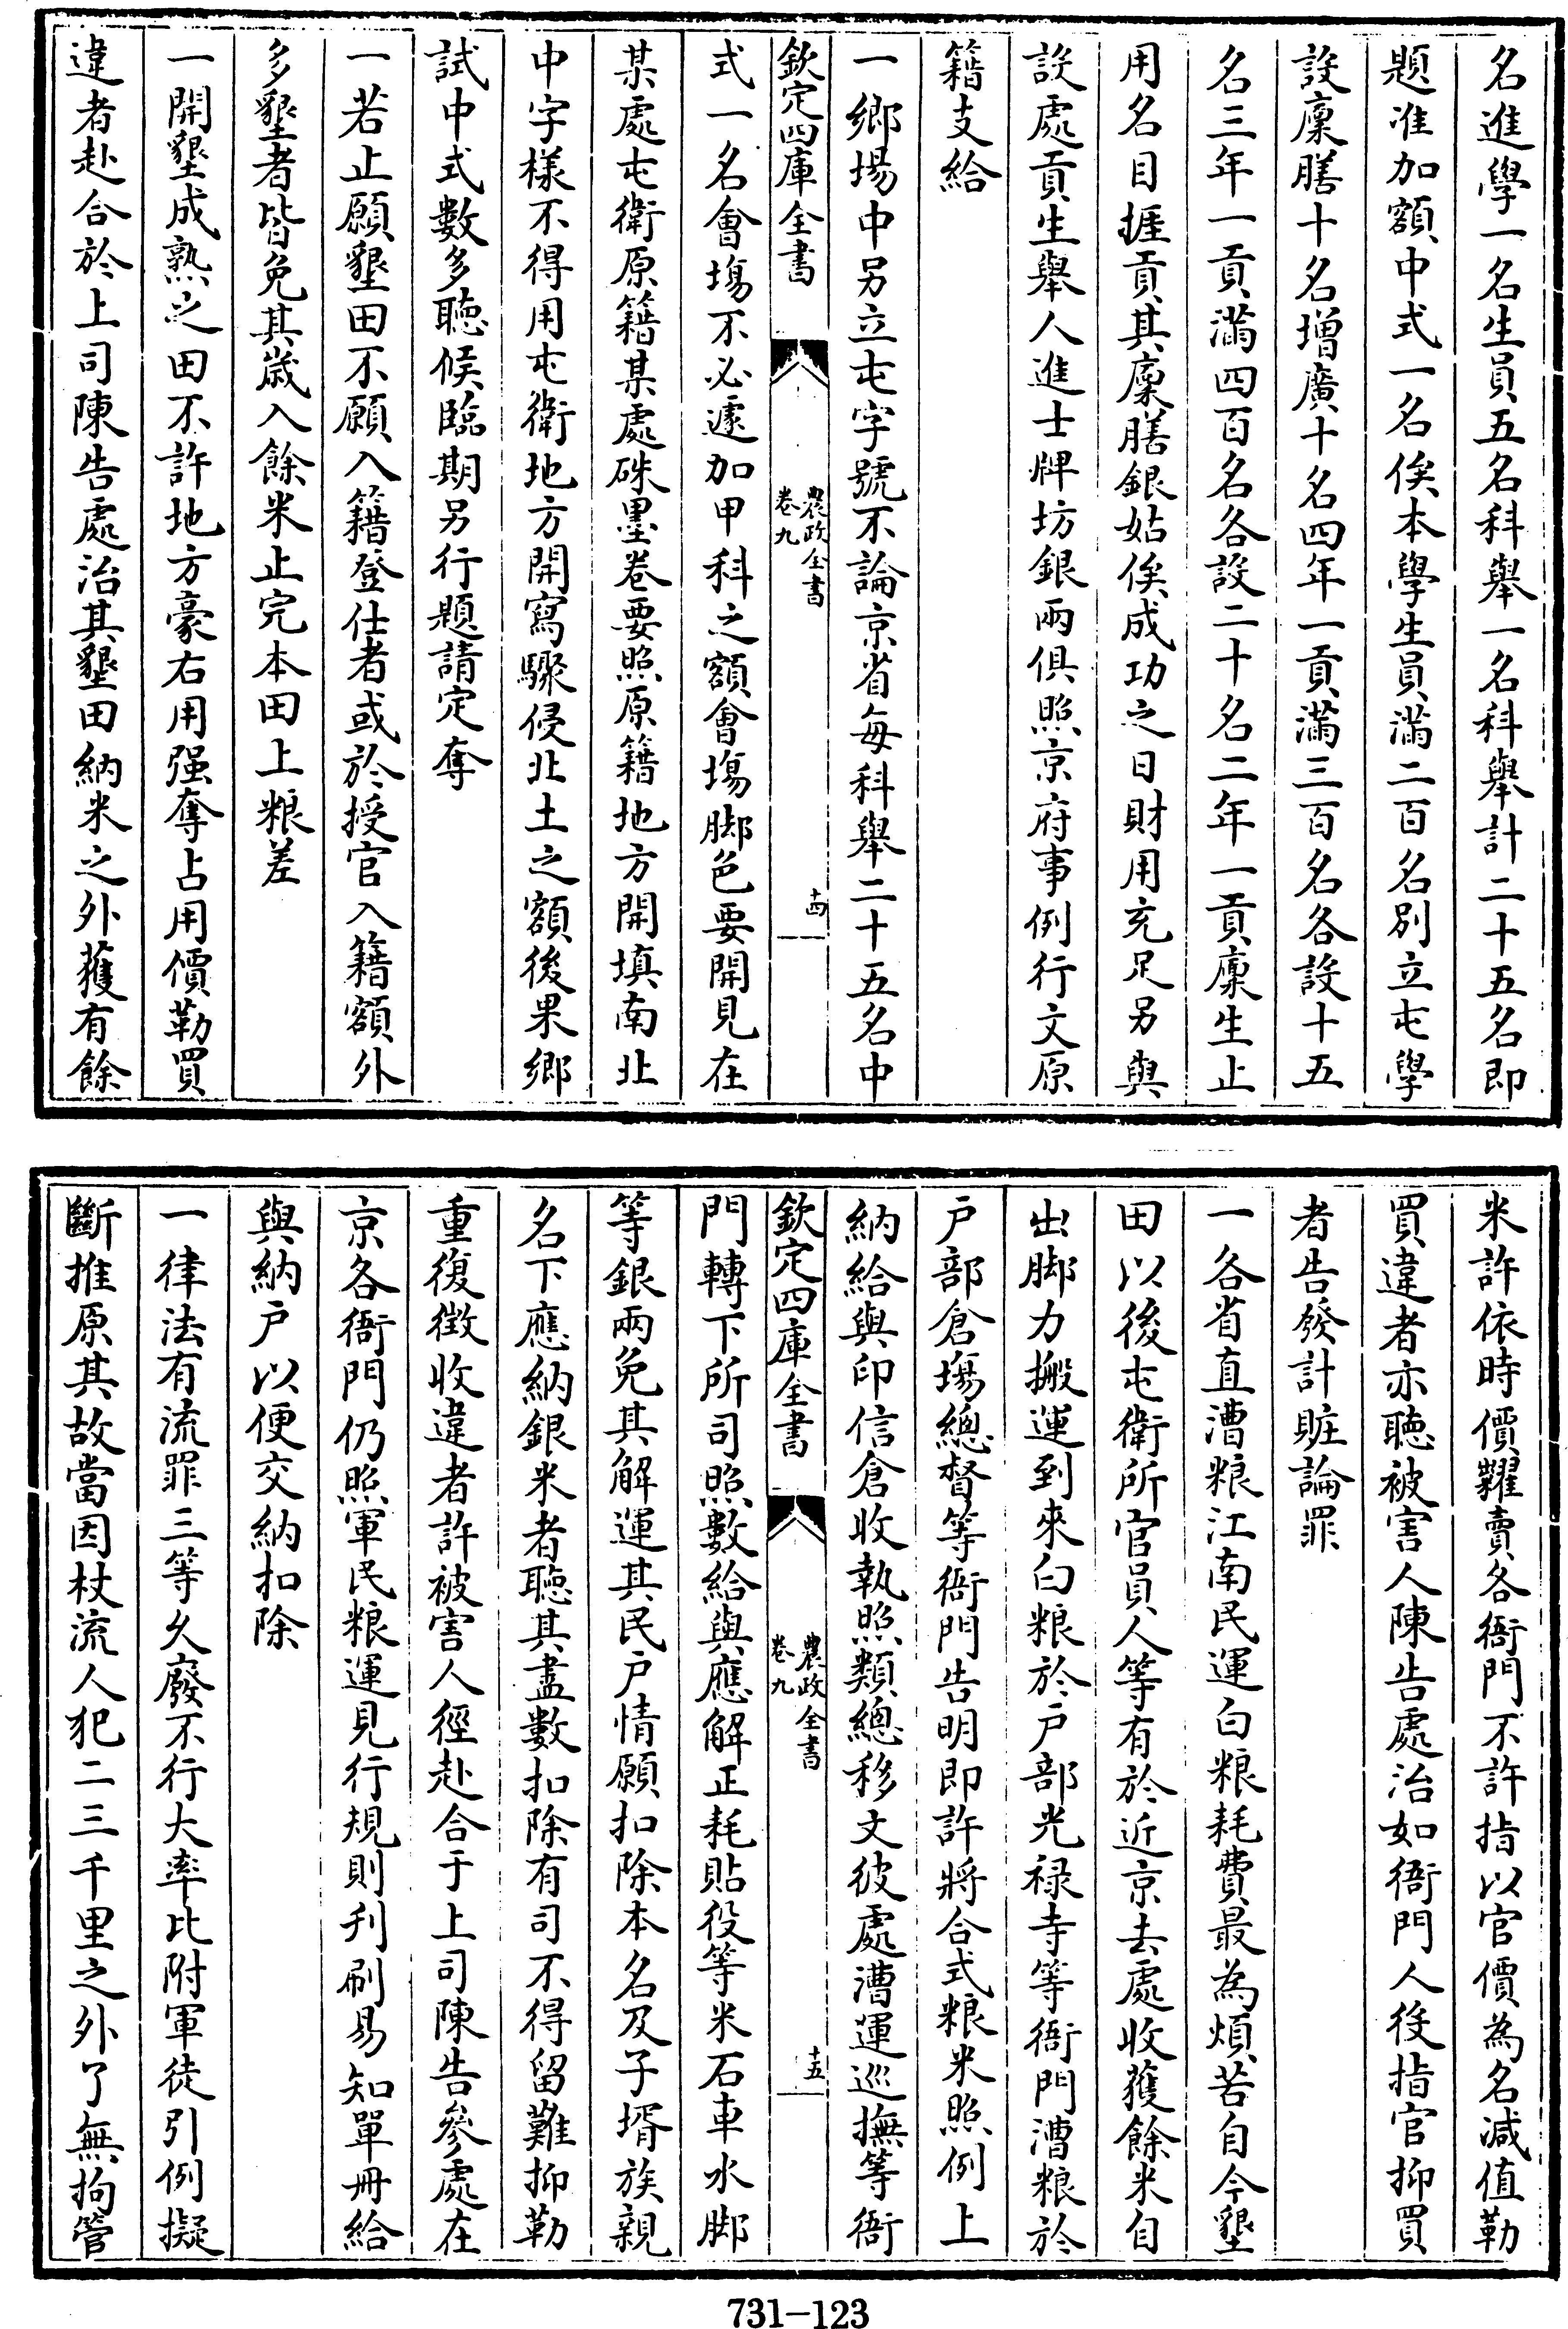 名進學一名生員五名科舉一名科舉計二十五名即
題准加額中式一名俟本學生員滿二百名別立屯學
設廩膳十名增廣十名四年一貢滿三百名各設十五
名三年一貢滿四百名各設二十名二年一貢廩生止
用名目捱貢其廩膳銀姑俟成功之日財用充足另與
設處貢生舉人進士牌坊銀兩俱照京府事例行文原
籍支給
一鄉場中另立屯字號不論京省每科舉二十五名中
欽定四庫全書
農政全書
卷九
十四
式一名會塲不必遽加甲科之額會塲脚色要開見在
某處屯衛原籍某處硃墨卷要照原籍地方開填南北
中字樣不得用屯衛地方開寫驟侵北土之額後果鄉
試中式數多聽候臨期另行題請定奪
一若止願墾田不願入籍登仕者或於授官入籍額外
多墾者皆免其歲入餘米止完本田上粮差
一開墾成熟之田不許地方豪右用强奪占用價勒買
違者赴合於上司陳告處治其墾田納米之外獲有餘
米許依時價糶賣各衙門不許指以官價為名減值勒
買違者亦聽被害人陳告處治如衙門人役指官抑買
者告發計賍論罪
一各省直漕粮江南民運白粮耗費最為煩苦自今墾
田以後屯衛所官員人等有於近京去處收獲餘米自
出脚力搬運到來白粮於戶部光禄寺等衙門漕粮於
戶部倉塲總督等衙門告明即許將合式粮米照例上
納給與印信倉收執照類總移文彼處漕運巡撫等衙
欽定四庫全書
農政全書
卷九
十五
門轉下所司照數給與應解正耗貼役等米石車水脚
等銀兩免其解運其民戶情願扣除本名及子壻族親
名下應納銀米者聽其盡數扣除有司不得留難抑勒
重復徵收違者許被害人徑赴合于上司陳告參處在
京各衙門仍照軍民粮運見行規則刋刷易知單冊給
與納戶以便交納扣除
一律法有流罪三等久廢不行大率比附軍徒引例擬
斷推原其故當因杖流人犯二三千里之外了無拘管
731-123